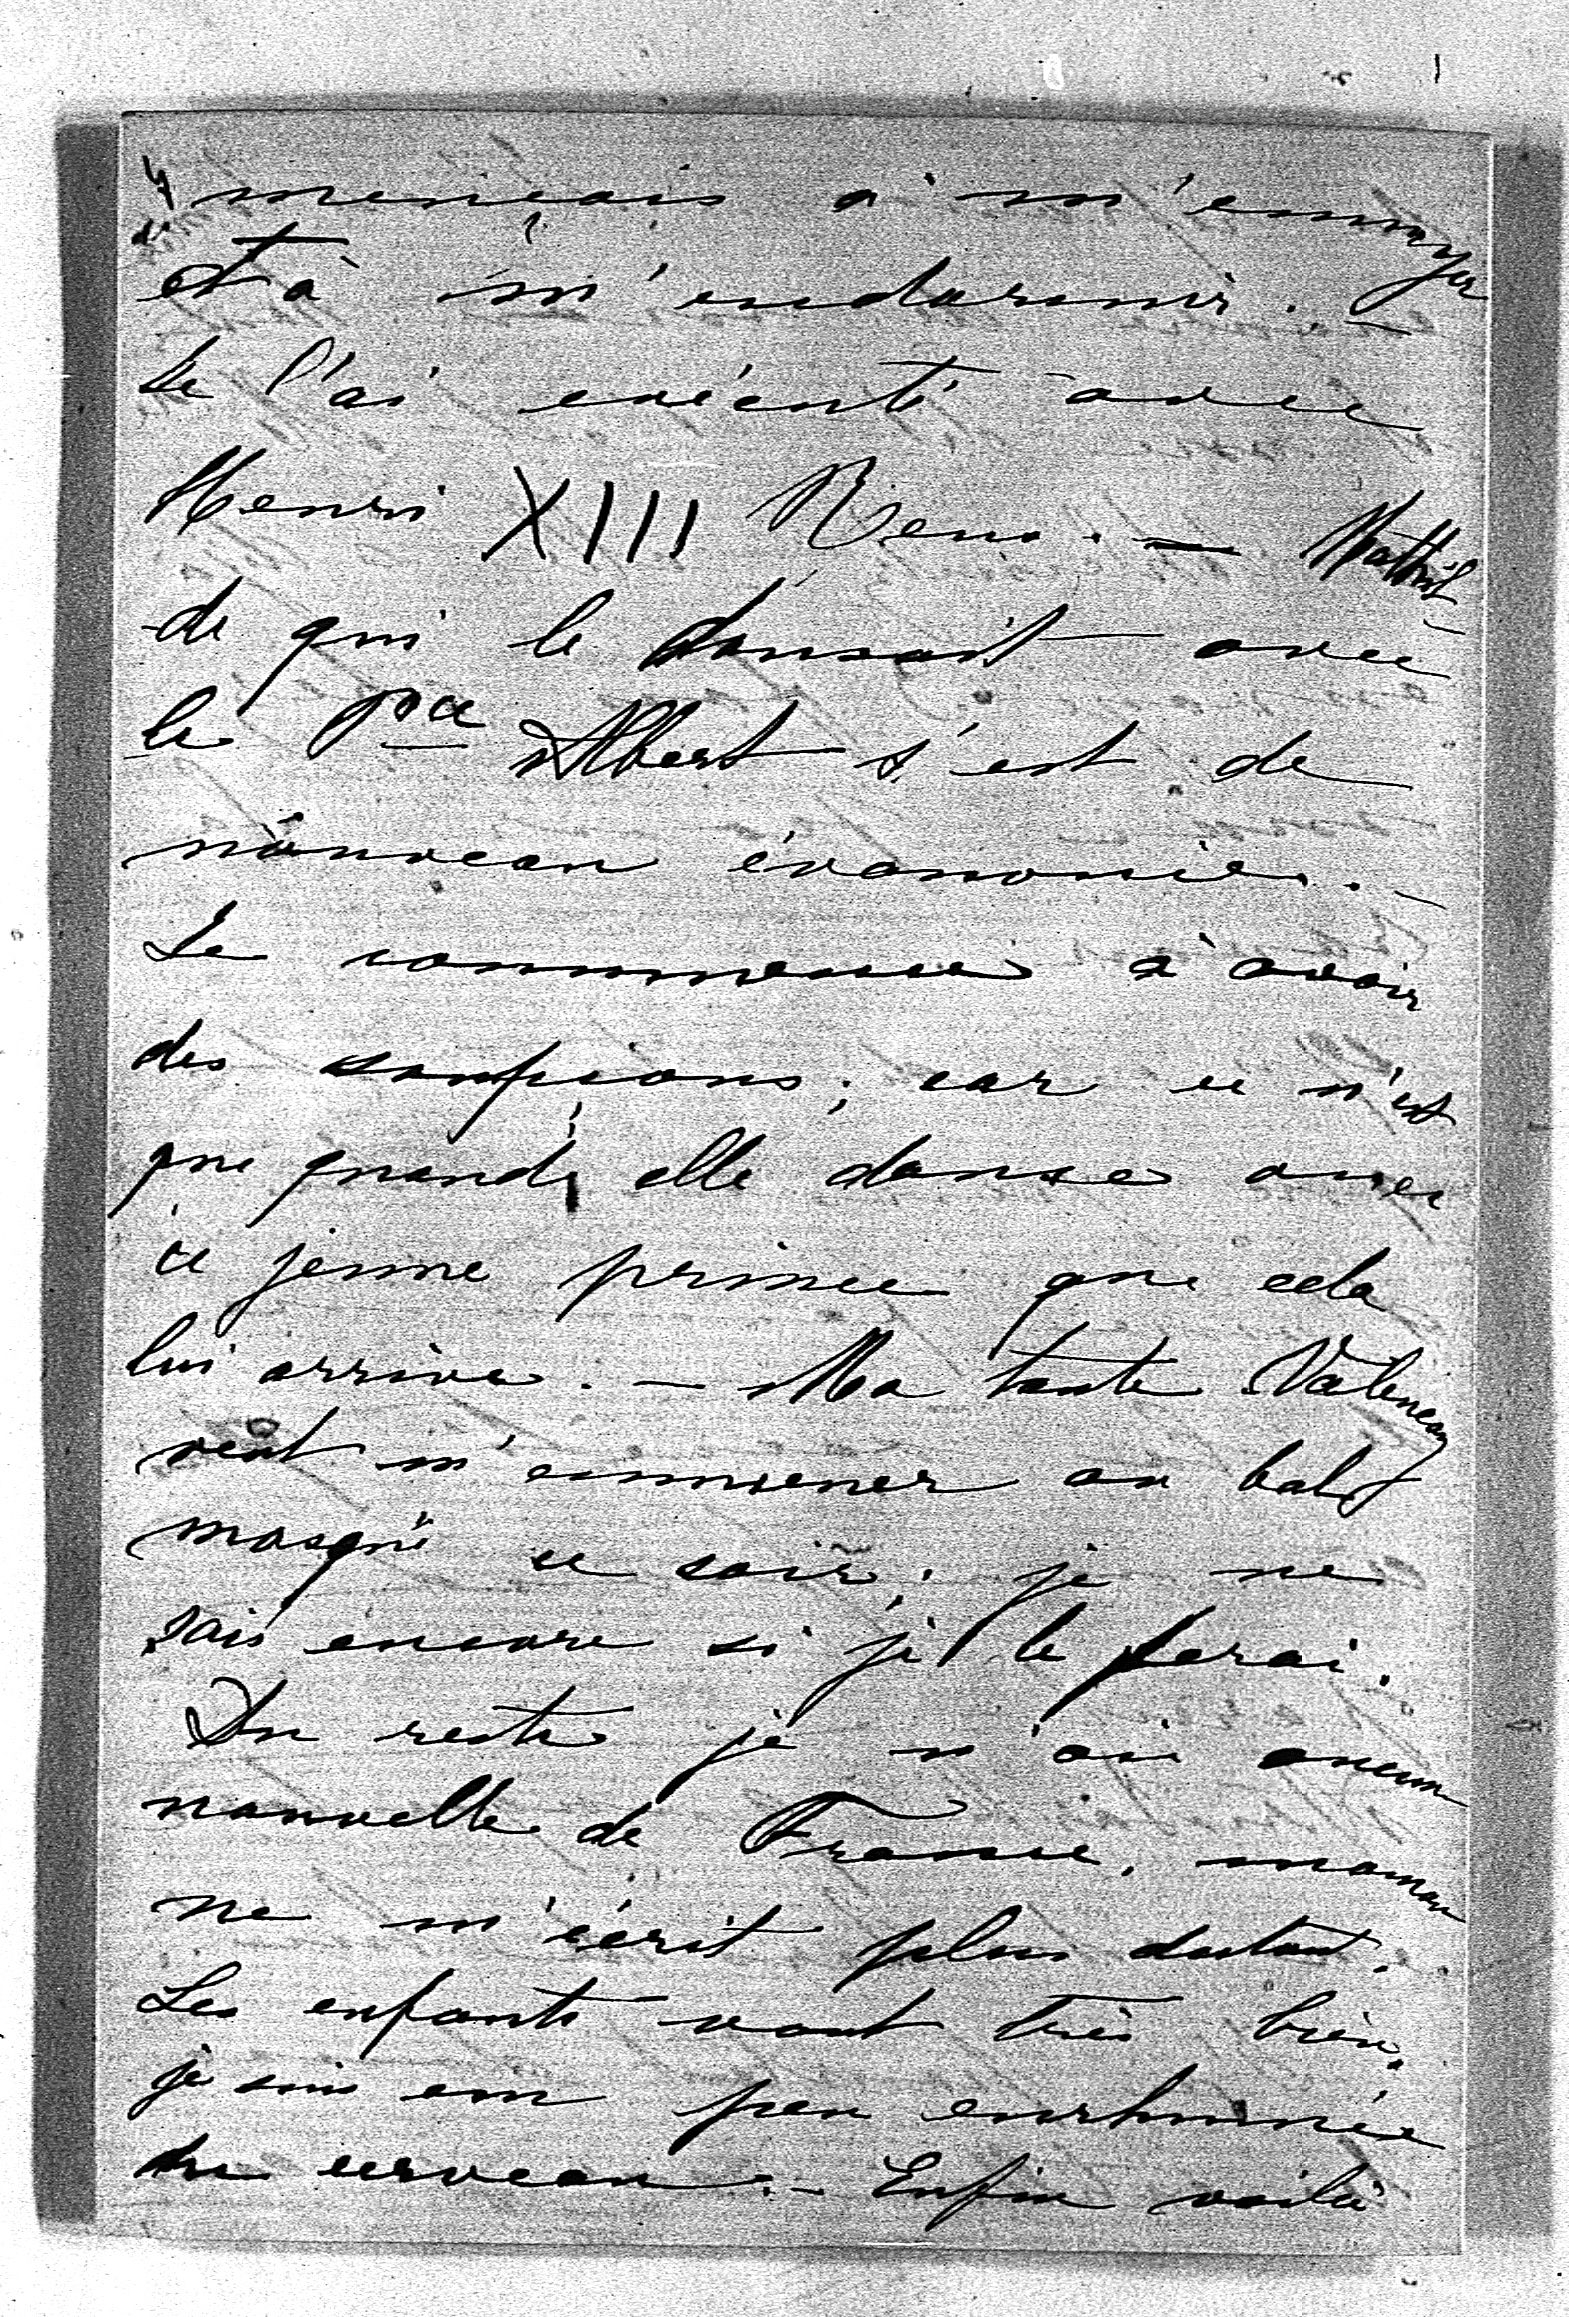 mençais à m'ennuyer
et à m'endormir. —
Je l'ai exécuté avec
Henri XIII Reus. — Mathil
de qui le dansait avec
le Pce Albert s'est de
nouveau évanouie. —
Je commence à avoir
des soupçons; car ce n'est
que quand elle danse avec
ce jeune prince que cela
lui arrive. — Ma tante Valençay
veut m'emmener au bal
masqué ce soir; je ne
sais encore si je le ferai.
Du reste je n'ai aucun
nouvelle de France, maman
ne m'écrit plus du tout.
Les enfants vont très bien,
je suis un peu enrhumée
du cerveau. — Enfin voilà